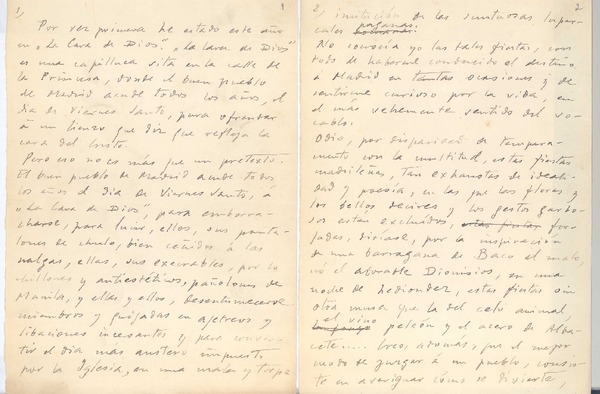 1,
1
Por vez primera he estado este año
en „La Cara de Dios". „La Cara de Dios"
es una capilluca sita en la calle de
la Princesa, donde el buen pueblo
de Madrid acude todos los años, el
dia de Viernes Santo, para ofrendar
á un lienzo que diz que refleja la
cara del Cristo.
Pero eso no es más que un pretexto.
El buen pueblo de Madrid acude todos
los años el dia de Viernes Santo, á
„La Cara de Dios", para emborra-
charse, para lucir, ellos, sus panta-
lones de chulo, bien ceñidos á las
nalgas, ellas, sus execrables, por
chillones y antiestéticos, pañolones de
Manila, y ellas y ellos, desentumecerse
miembros y quijadas en ajetreos y
libaciones incesantes y para conver-
tir el dia más austero impuesto
por la Iglesia, en una mala y torpe
2,
2
imitación de las suntuosas Luper-
cales paganas.
No conocía yo las tales fiestas, con
todo de haberme conducido el destino
á Madrid en tantas ocasiones y de
sentirme curioso por la vida, en
el más vehemente sentido del vo-
cablo.
Odio, por disparidad de tempera-
mento con la multitud, estas fiestas
madrileñas, tan exhaustas de ideali-
dad y poesía, en las que las flores y
los bellos decires y los gestos garbo-
sos están excluidos, estas fiestas for-
jadas, diríase, por la inspiración
de una barragana de Baco el malo,
nó el adorable Dionisios, en una
noche de hediondez, estas fiestas sin
otra musa que la del celo animal,
el vino
peleón y el acero de Alba-
cete.... Creo, además, que el mejor
modo de juzgar á un pueblo, consis-
te en averiguar cómo se divierte,